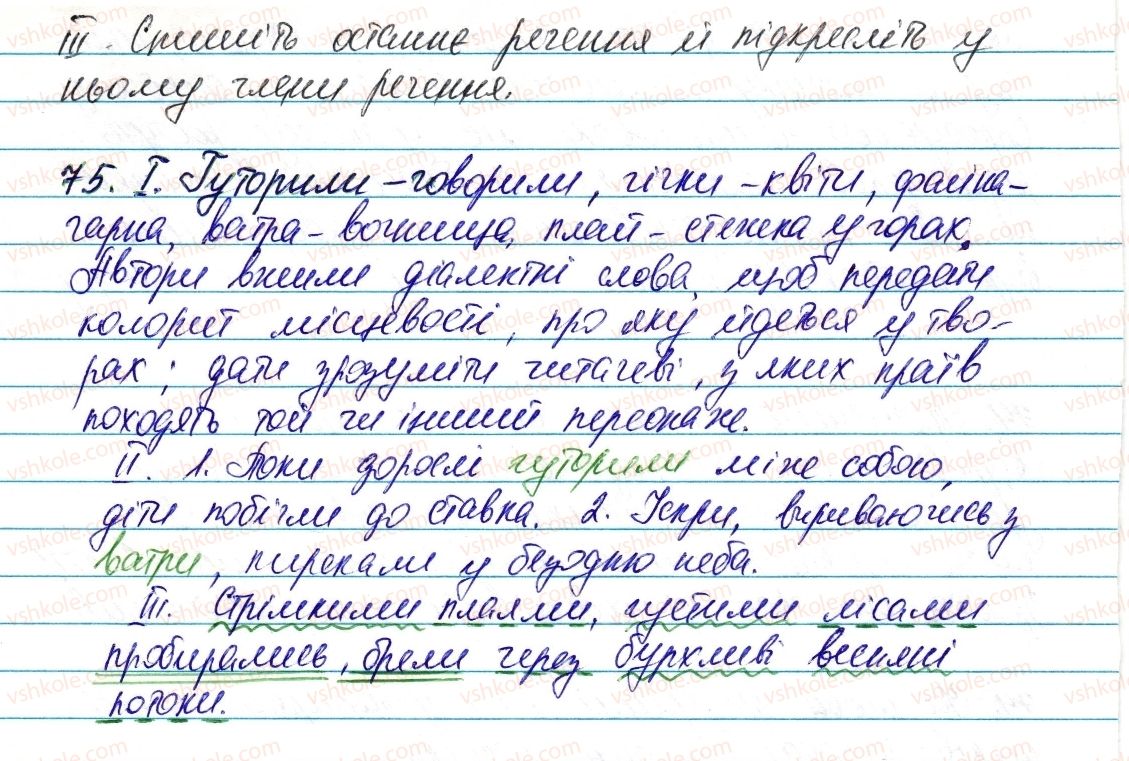 ІІІ. Спишіть останнє речення й підкресліть у
ньому члени речення.
75. І. Гуторили – говорили, чічки – квіти, файна –
гарна, ватра – вогнище, плай – стежка у горах.
Автори вжили діалектні слова, щоб передати
колорит місцевості, про яку йдеться у тво-
рах; дати зрозуміти читачеві, з яких країв
походять той чи інший персонаж.
ІІ. 1. Поки дорослі гуторили між собою,
діти побігли до ставка. 2. Іскри, вириваючись з
ватри, пирхали у безодню неба.
ІІІ. Стрімкими плаями, густими лісами
пробирались, брели через бурхливі весняні
потоки.